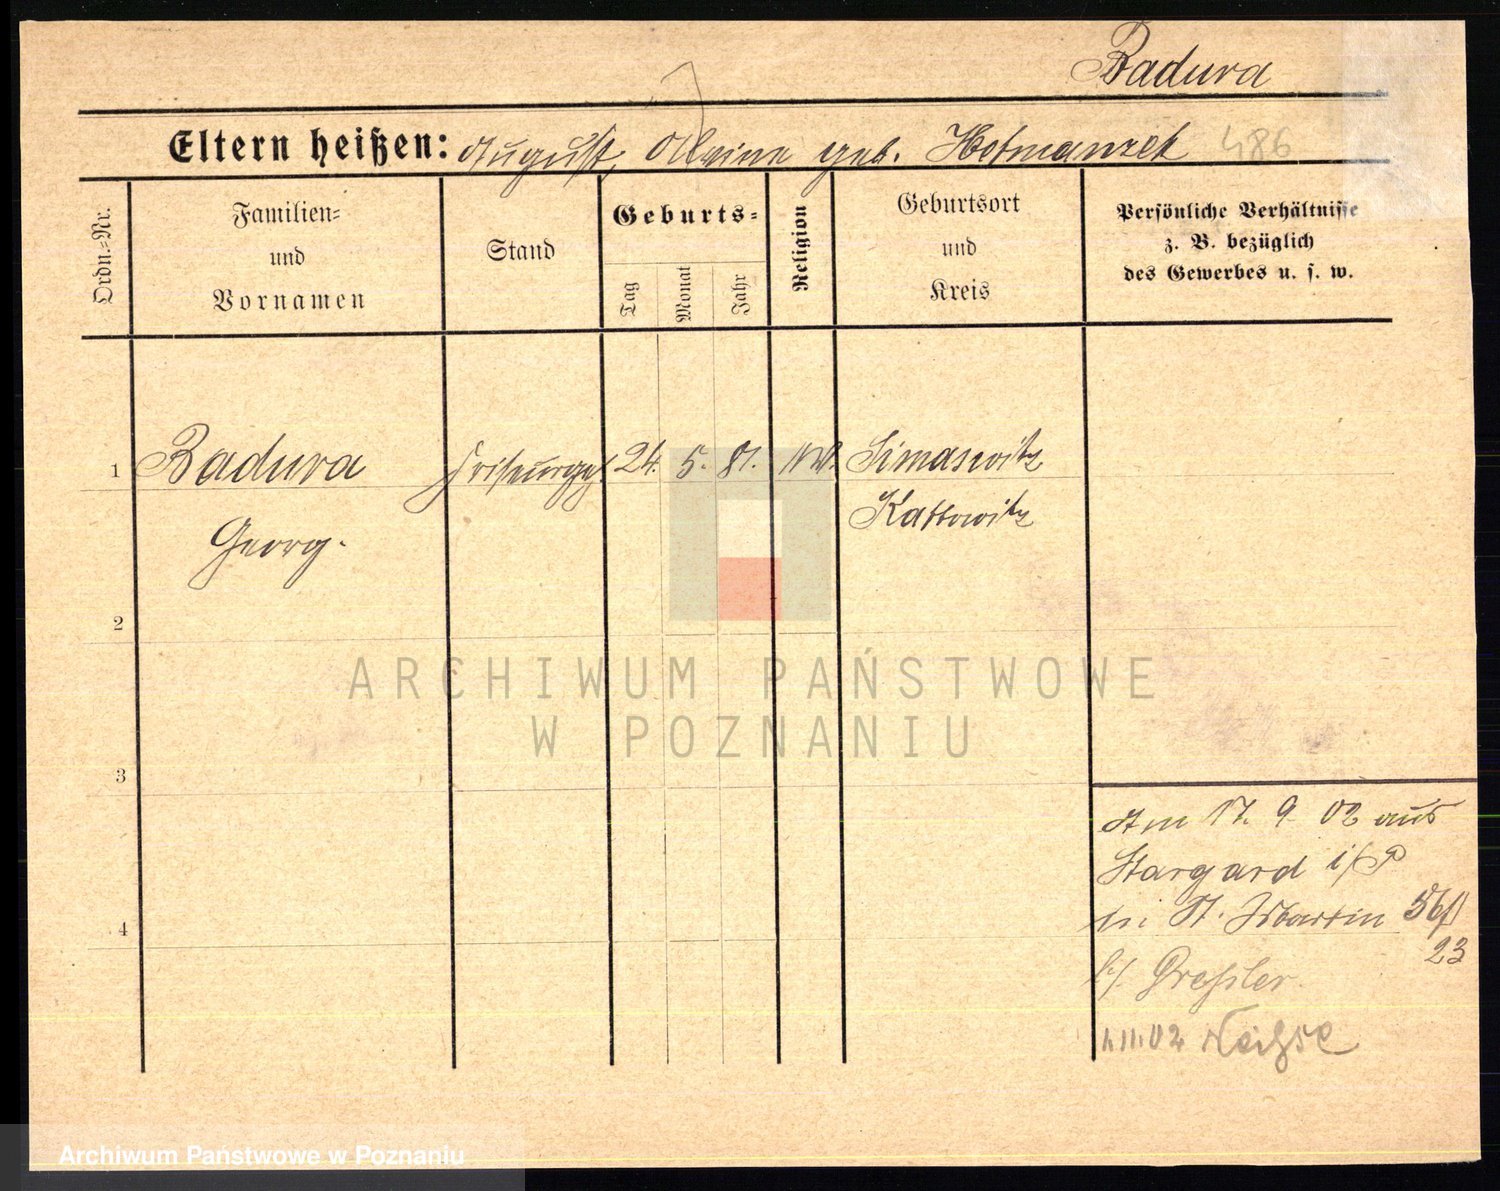 Badura
Eltern heißen: August, geb. Hofmanzek 486
Ordn.=Nr.
Familien=
und
Vornamen
Stand
Geburts=
Tag
Monat
Jahr
Religion
Geburtsort
und
Kreis
Persönliche Verhältnisse
z. B. bezüglich
des Gewerbes u. s. w.
1 Badura 24. 5. 81. Simaswitz
Georg. Kattowitz
2
3
4
Am 17. 9 02 aus
Stargard i/P
St. Martin 56/
23
b/ Dreßler.
1.11.02 Neiße
ARCHIWUM PAŃSTWOWE
W POZNANIU
Archiwum Państwowe w Poznaniu